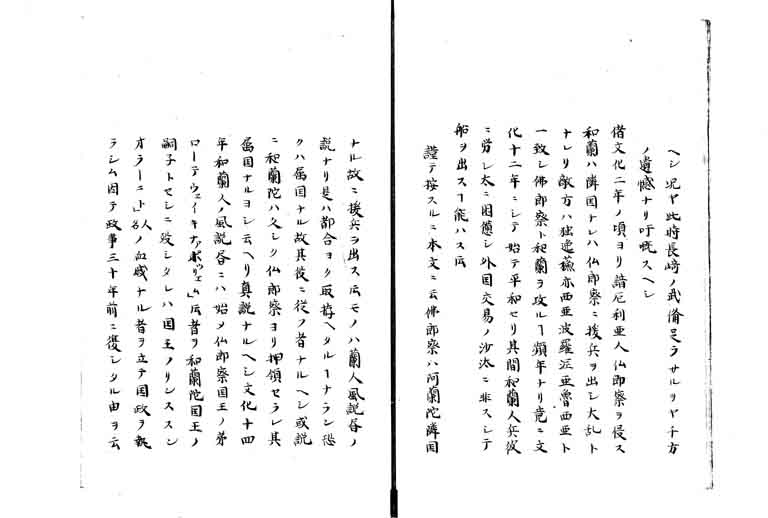 ヘシ況ヤ此時長崎ノ武備足ラサルヲヤ千万
ノ遺憾ナリ吁嘅スヘシ
偖文化二年ノ頃ヨリ諳厄利亜人仏郎察ヲ侵ス
和蘭ハ隣国ナレハ仏郎察ニ援兵ヲ出シ大乱ト
ナレリ敵方ハ独逸蘓亦西亜波羅泥亜魯西亜ト
一致シ佛郎察ト和蘭ヲ攻ルヿ頻年ナリ竟ニ文
化十二年ニシテ始テ平和セリ其間和蘭人兵役
ニ労レ太ニ困憊シ外国交易ノ沙汰ニ非スシテ
船ヲ出スヿ能ハス云
謹テ按スルニ本文ニ云佛郎察ハ阿蘭陀隣国
ナル故ニ援兵ヲ出ス云モノハ蘭人風説昏ノ
説ナリ是ハ都合ヨク取拵ヘタルヿナラン恐
クハ属国ナル故其後ニ従フ者ナルヘシ或説
ニ和蘭陀ハ久シク仏郎察ヨリ押領セラレ其
属国ナルヨシ云ヘリ真説ナルヘシ文化十四
年和蘭人ノ風説昏ニハ始メ仏郎察国王ノ弟
ローデウェイキナァポリヲッェム云者ヲ和蘭陀国王ノ
嗣子トセシニ歿シタレハ国王ノリンススン
オラーニ ト人名ノ血戚ナル者ヲ立テ国政ヲ執
ラシム因テ政事三十年前ニ復シタル由ヲ云